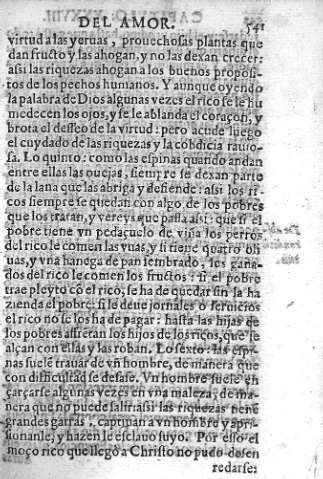 DEL AMOR. 541
virtud a las yeruas, prouechosas plantas que
dan fructo y las ahogan, y no las dexan crecer:
assi las riquezas ahogan a los buenos proposi-
tos de los pechos humanos. Y aunque oyendo
la palabra de Dios algunas vezes el rico se le hu
medecen los ojos, y se le ablanda el coraçon, y
brota el desseo de la virtud: pero acude luego
el cuydado de las riquezas y la cobdicia rauio-
sa. Lo quinto: como las espinas quando andan
entre ellas las ouejas, siempre se dexan parte
de la lana que las abriga y defiende: assi los ri-
cos siempre se quedan con algo de los pobres
que los tratan, y vereys que passa assi: que si el
pobre tiene vn pedaçuelo de viña los perros
del rico le comen las vuas, y si tiene quatro oli
uas, y vna hanega de pan sembrado, les gana-
dos del rico le comen los fructos: si el pobre
trae pleyto cõ el rico, se ha de quedar sin la ha
zienda el pobre: si le deue jornales o seruicios
el rico no se los ha de pagar: hasta las hijas de
los pobres assieran los hijos de los ricos, que se
alçan con ellas y las roban. Lo sexto: las espi-
nas suelẽ trauar de vn hombre, de manera que
con difficultad se desase. Vn hombre suele en
çarçarse algunas vezes en vna maleza, de ma-
nera que no puede salir: assi las riquezas tienẽ
grandes garras, captiuan a vn hombre y apri-
sionanle, y hazen le esclauo suyo. Por esso el
moço rico que llegò a Christo no pudo desen
redarse: